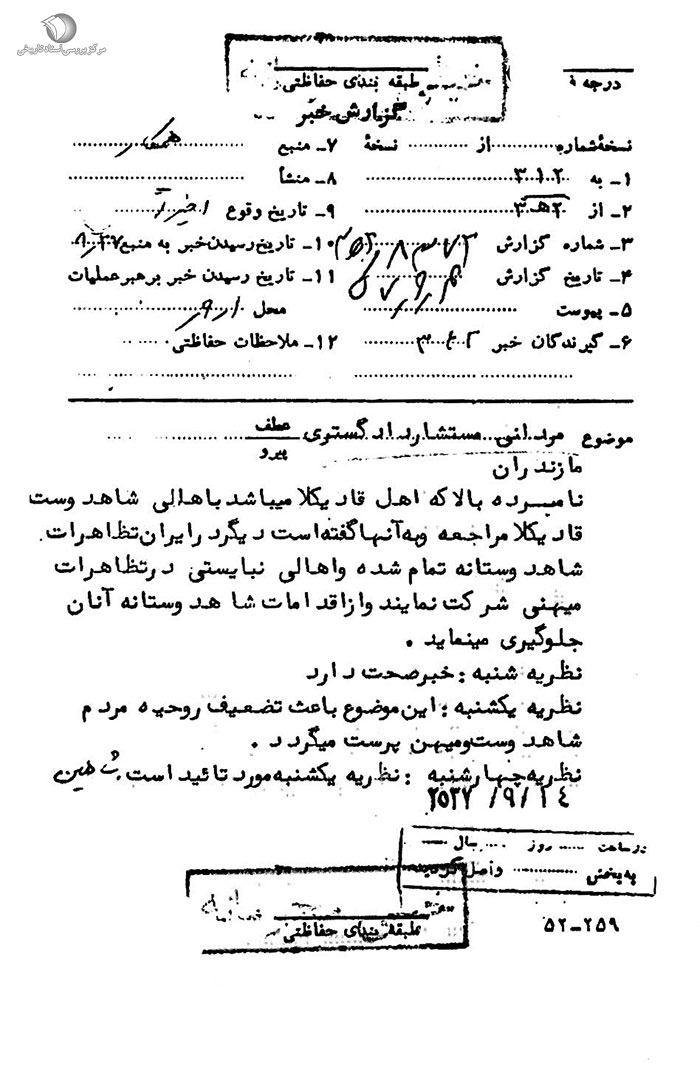 مرکز بررسی اسناد تاریخی
طبقه بندی حفاظتی
درجه
گزارش خبر
نسخهٔ شماره ........ از ........ نسخهٔ
۷ـ منبع همکار
۱ـ به ۳۱۲
۸ـ منشأ
۲ـ از ۳هـ۲۰
۹ـ تاریخ وقوع اخیراً
۳ـ شماره گزارش
۱۰ـ تاریخ رسیدن خبر به منبع
۴ـ تاریخ گزارش
۱۱ـ تاریخ رسیدن خبر برهبر عملیات
۵ـ پیوست
محل
۶ـ گیرندگان خبر
۱۲ـ ملاحظات حفاظتی
موضوع مردانی مستشار دادگستری عطف
پیرو
مازندران
نامبرده بالا که اهل قادیکلا میباشد باهالی شاهدوست
قادیکلا مراجعه وبه آنها گفته است دیگر درایران تظاهرات
شاهدوستانه تمام شده واهالی نبایستی درتظاهرات
میهنی شرکت نمایند وازاقدامات شاهدوستانه آنان
جلوگیری مینماید .
نظریه شنبه : خبر صحت دارد
نظریه یکشنبه : این موضوع باعث تضعیف روحیه مردم
شاهدوست ومیهن پرست میگردد .
نظریه چهارشنبه : نظریه یکشنبه مورد تائید است.
۲۵۳۷/۹/۱۴
درساعت ...... روز .... سال
به بخش ............ واصل گردید
طبقه بندی حفاظتی
۵۲-۲۵۹